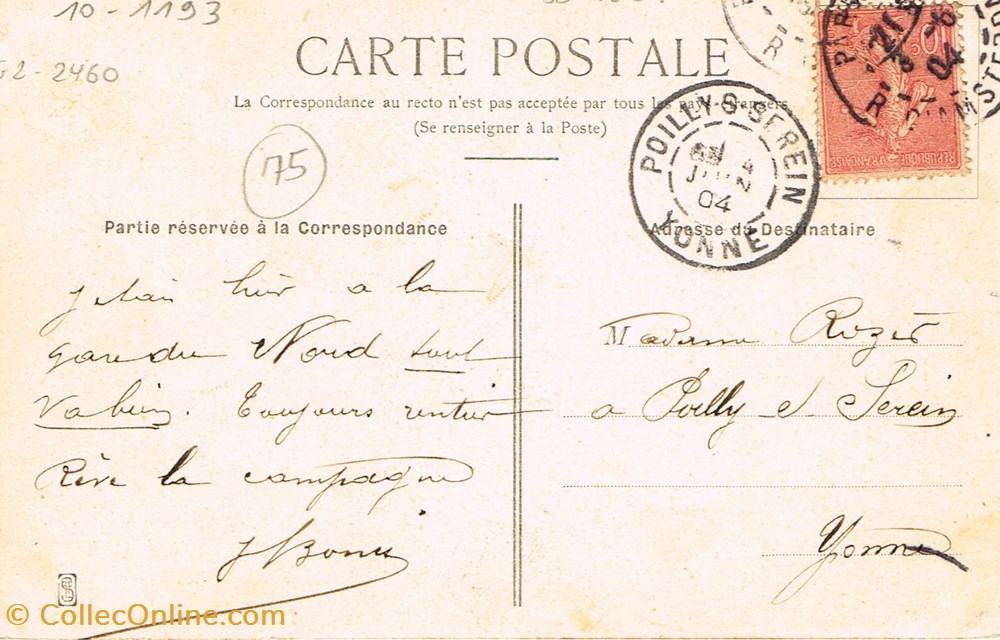 10-1193
G2-2460
CARTE POSTALE
La Correspondance au recto n'est pas acceptée par tous les pays étrangers
(Se renseigner à la Poste)
75
POILLY-S-SEREIN
JUIN
04
YONNE
PARIS
04
AMSTERDAM
10c
REPUBLIQUE FRANÇAISE
Partie réservée à la Correspondance
j'etais hier a la
gare du Nord tout
va bien. Toujours rentier
Rêve la campagne
Adresse du Destinataire
Madame Rozet
a Poilly s/ Serein
Yonne
© CollecOnline.com